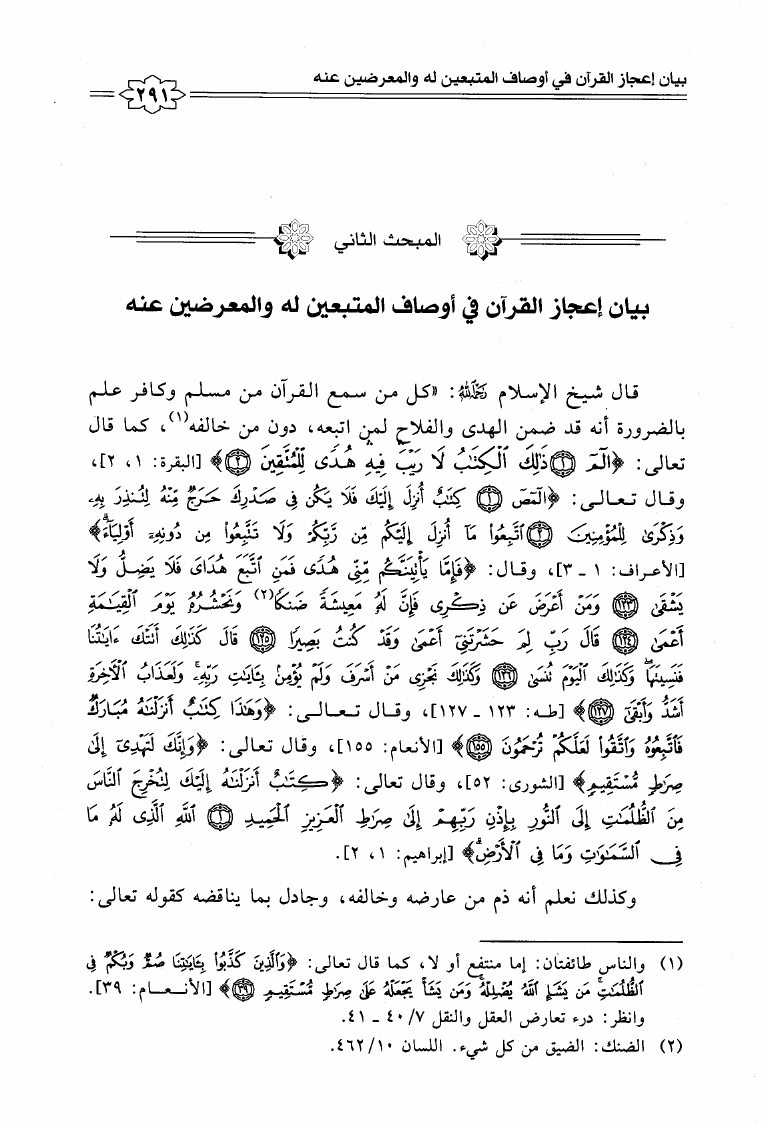 بيان إعجاز القرآن في أوصاف المتبعين له والمعرضين عنه
٢٩١
المبحث الثاني
بيان إعجاز القرآن في أوصاف المتبعين له والمعرضين عنه
قال شيخ الإسلام رحمه الله: «كل من سمع القرآن من مسلم وكافر علم
بالضرورة أنه قد ضمن الهدى والفلاح لمن اتبعه، دون من خالفه(١)، كما قال
تعالى: ﴿الٓمٓ ١ ذَٰلِكَ ٱلْكِتَٰبُ لَا رَيْبَ فِيهِ هُدًى لِّلْمُتَّقِينَ ٢﴾ [البقرة: ١، ٢]،
وقال تعالى: ﴿الٓمٓصٓ ١ كِتَٰبٌ أُنزِلَ إِلَيْكَ فَلَا يَكُن فِى صَدْرِكَ حَرَجٌ مِّنْهُ لِتُنذِرَ بِهِۦ
وَذِكْرَىٰ لِلْمُؤْمِنِينَ ٢ ٱتَّبِعُوا۟ مَآ أُنزِلَ إِلَيْكُم مِّن رَّبِّكُمْ وَلَا تَتَّبِعُوا۟ مِن دُونِهِۦٓ أَوْلِيَآءَ﴾
[الأعراف: ١ ـ ٣]، وقال: ﴿فَإِمَّا يَأْتِيَنَّكُم مِّنِّى هُدًى فَمَنِ ٱتَّبَعَ هُدَاىَ فَلَا يَضِلُّ وَلَا
يَشْقَىٰ ١٢٣ وَمَنْ أَعْرَضَ عَن ذِكْرِى فَإِنَّ لَهُۥ مَعِيشَةً ضَنكًا(٢) وَنَحْشُرُهُۥ يَوْمَ ٱلْقِيَٰمَةِ
أَعْمَىٰ ١٢٤ قَالَ رَبِّ لِمَ حَشَرْتَنِىٓ أَعْمَىٰ وَقَدْ كُنتُ بَصِيرًا ١٢٥ قَالَ كَذَٰلِكَ أَتَتْكَ ءَايَٰتُنَا
فَنَسِيتَهَا وَكَذَٰلِكَ ٱلْيَوْمَ تُنسَىٰ ١٢٦ وَكَذَٰلِكَ نَجْزِى مَنْ أَسْرَفَ وَلَمْ يُؤْمِنۢ بِـَٔايَٰتِ رَبِّهِۦ وَلَعَذَابُ ٱلْءَاخِرَةِ
أَشَدُّ وَأَبْقَىٰٓ ١٢٧﴾ [طه: ١٢٣ ـ ١٢٧]، وقال تعالى: ﴿وَهَٰذَا كِتَٰبٌ أَنزَلْنَٰهُ مُبَارَكٌ
فَٱتَّبِعُوهُ وَٱتَّقُوا۟ لَعَلَّكُمْ تُرْحَمُونَ ١٥٥﴾ [الأنعام: ١٥٥]، وقال تعالى: ﴿وَإِنَّكَ لَتَهْدِىٓ إِلَىٰ
صِرَٰطٍ مُّسْتَقِيمٍ﴾ [الشورى: ٥٢]، وقال تعالى: ﴿كِتَٰبٌ أَنزَلْنَٰهُ إِلَيْكَ لِتُخْرِجَ ٱلنَّاسَ
مِنَ ٱلظُّلُمَٰتِ إِلَى ٱلنُّورِ بِإِذْنِ رَبِّهِمْ إِلَىٰ صِرَٰطِ ٱلْعَزِيزِ ٱلْحَمِيدِ ١ ٱللَّهِ ٱلَّذِى لَهُۥ مَا
فِى ٱلسَّمَٰوَٰتِ وَمَا فِى ٱلْأَرْضِ﴾ [إبراهيم: ١، ٢].
وكذلك نعلم أنه ذم من عارضه وخالفه، وجادل بما يناقضه كقوله تعالى:
(١) والناس طائفتان: إما منتفع أو لا، كما قال تعالى: ﴿وَٱلَّذِينَ كَذَّبُوا۟ بِـَٔايَٰتِنَا صُمٌّ وَبُكْمٌ فِى
ٱلظُّلُمَٰتِ مَن يَشَإِ ٱللَّهُ يُضْلِلْهُ وَمَن يَشَأْ يَجْعَلْهُ عَلَىٰ صِرَٰطٍ مُّسْتَقِيمٍ ٣٩﴾ [الأنعام: ٣٩].
وانظر: درء تعارض العقل والنقل ٧/ ٤٠ ـ ٤١.
(٢) الضنك: الضيق من كل شيء. اللسان ١٠/ ٤٦٢.